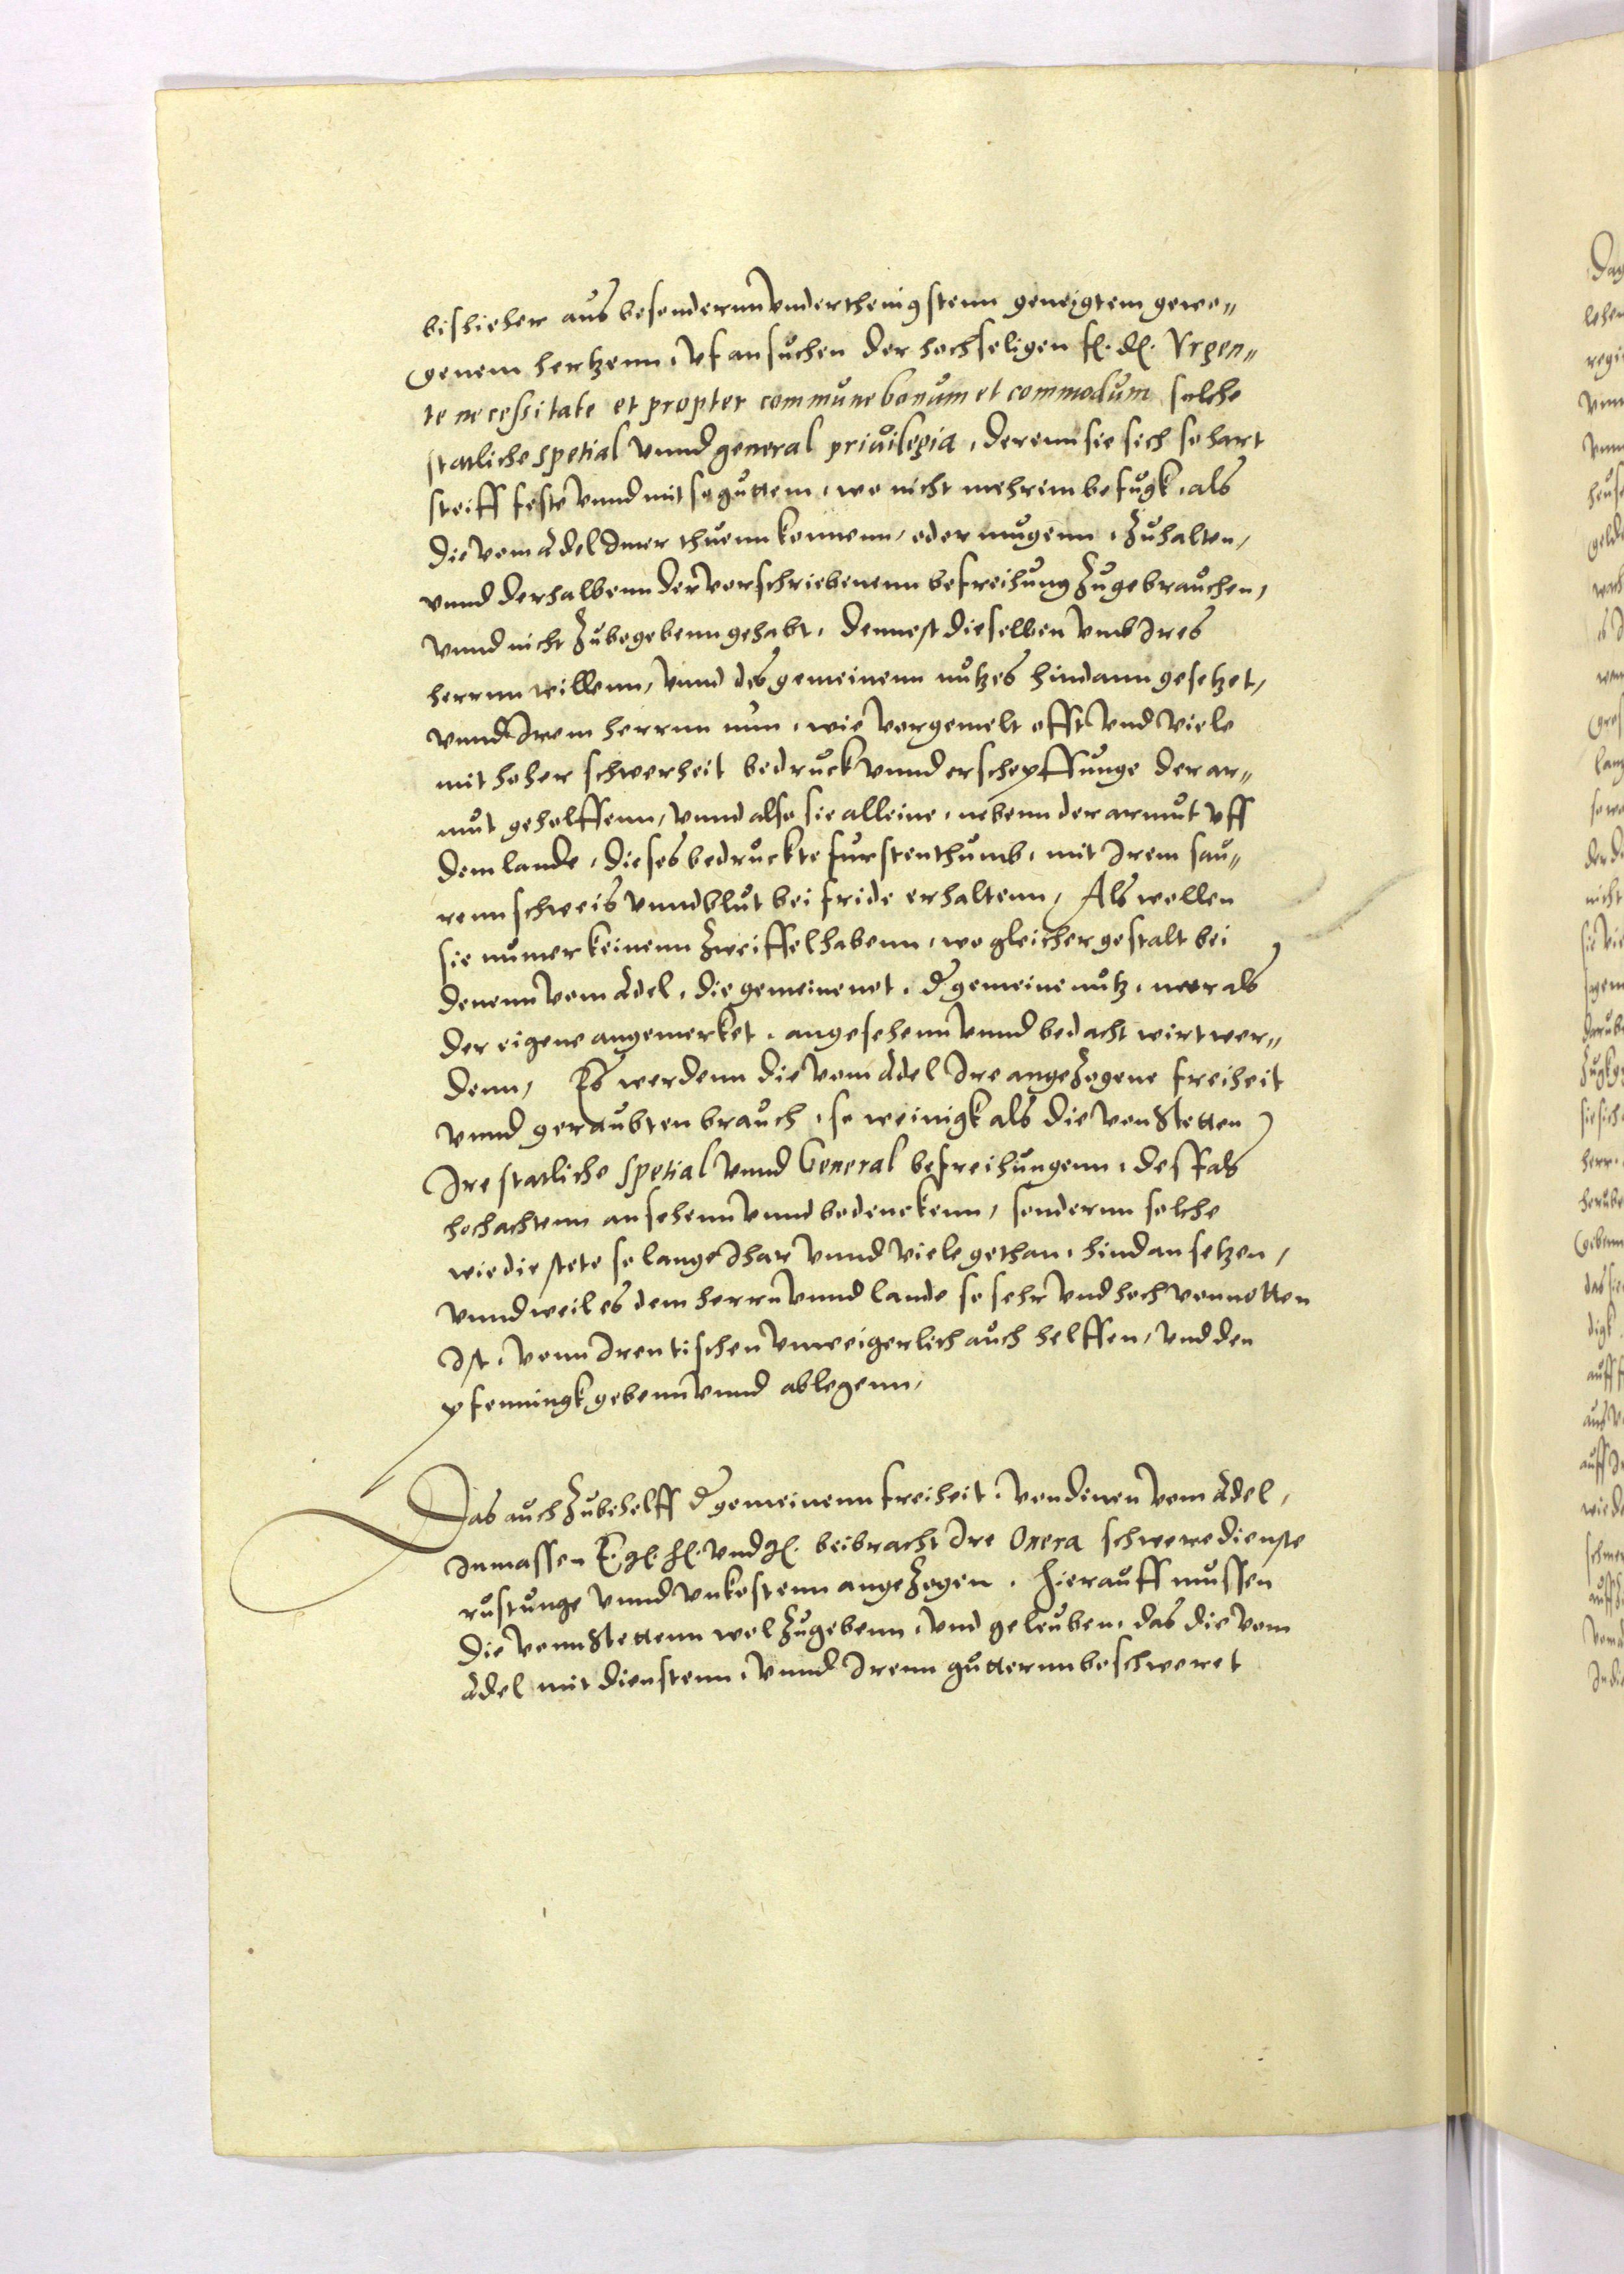 bishieher aus besondernn vnderthenigstenn geneigtem gewo„
genem hertzenn, vf ansuchen der hochseligen f. d. Vrgen„
te necessitate et propter commune bonum et commodum solche
statliche spetial vnnd general priuilegia, derenn sie sich so hart
steiff feste vnnd mit so guttem, wo nicht mehrem befugk, als
die vom Adel Imer thuenn konnenn, oder mugenn, zuhalten,
vnnd derhalbenn der vorschriebenenn befreihung zugebrauchen,
vnnd nicht zubegebenn gehabt, dennest dieselben vmb Ires
herrnn willenn, vnnd des gemeinenn nutzes hindann gesetzet,
vnnd Irem herrnn nun, wie vorgemelt offt vnd viele
mit hoher schwerheit bedruck vnnd erschepffunge der ar„
mut geholffenn, vnnd also sie alleine, nebenn der armut vff
dem lande, dieses bedruckte furstenthumb, mit Irem sau„
renn schweis vnnd blut bei fride erhaltenn, Als wollen
sie numer keinenn zweiffel habenn, wo gleicher gestalt bei
denenn vom Adel, die gemeine not, d gemeine nutz, meer als
der eigene angemerket, angesehenn vnnd bedacht wirt wer„
denn, Es werdenn die vom Adel Ire angezogene freiheit
vnnd geraubten brauch, so weinigk als die von Stetten
Ire statliche Spetial vnnd General befreihungenn, desfals
hochachtenn ansehenn vnnd bedenckenn, sondernn solche
wie die stete so lange Ihar vnnd viele gethan, hindan setzen,
vnnd weil es dem herrn vnnd lande so sehr vnd hoch vonnotten
Ist, vonn Iren tischen vnweigerlich auch helffen, vnd den
pfenningk gebenn vnnd ablegenn,
Das auch zubehelff d gemeinenn freiheit, von denen vom Adel,
Inmassen E. g. f. vnd g. beibracht Ire Onera schwere dienste
rustunge vnnd vnkostenn angezogen. Hierauff mussen
die vonn Stettenn wol zugebenn, vnd geleuben, das die vom
Adel mit dienstenn, vnnd Irenn gutternn beschweret